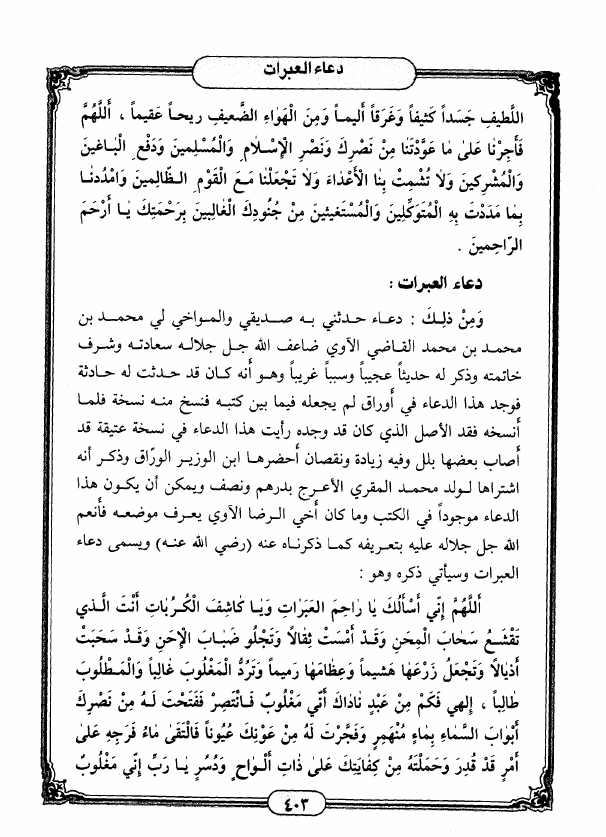 دعاء العبرات
اللَّطيفِ جَسَداً كَثيفاً وَغَرَقاً أَليماً وَمِنَ الْهَوَاءِ الضَّعيفِ ريحاً عَقيماً ، أَللَّهُمَّ
فَأَجِرْنَا عَلىٰ مٰا عَوَّدْتَنٰا مِنْ نَصْرِكَ وَنَصْرِ الْإِسْلٰامِ وَالْمُسْلِمينَ وَدَفْعِ الْبٰاغينَ
وَالْمُشْرِكينَ وَلٰا تُشْمِتْ بِنٰا الْأَعْدٰاءَ وَلٰا تَجْعَلْنٰا مَعَ الْقَوْمِ الظّٰالِمينَ وَامْدُدْنٰا
بِمٰا مَدَدْتَ بِهِ الْمُتَوَكِّلينَ وَالْمُسْتَغيثينَ مِنْ جُنُودِكَ الْغٰالِبينَ بِرَحْمَتِكَ يٰا أَرْحَمَ
الرّٰاحِمينَ .
دعاء العبرات :
وَمِنْ ذلِكَ : دعاء حدثني به صديقي والمواخي لي محمد بن
محمد بن محمد القاضي الآوي ضاعف الله جل جلاله سعادته وشرف
خاتمته وذكر له حديثاً عجيباً وسبباً غريباً وهو أنه كان قد حدثت له حادثة
فوجد هذا الدعاء في أوراق لم يجعله فيما بين كتبه فنسخ منه نسخة فلما
أنسخه فقد الأصل الذي كان قد وجده رأيت هذا الدعاء في نسخة عتيقة قد
أصاب بعضها بلل وفيه زيادة ونقصان أحضرها ابن الوزير الورّاق وذكر أنه
اشتراها لولد محمد المقري الأعرج بدرهم ونصف ويمكن أن يكون هذا
الدعاء موجوداً في الكتب وما كان أخي الرضا الآوي يعرف موضعه فأنعم
الله جل جلاله عليه بتعريفه كما ذكرناه عنه (رضي الله عنه) ويسمى دعاء
العبرات وسيأتي ذكره وهو :
أَللَّهُمَّ إِنّي أَسْأَلُكَ يٰا رٰاحِمَ العَبَرٰاتِ وَيٰا كٰاشِفَ الْكُرُبٰاتِ أَنْتَ الَّذي
تَقْشَعُ سَحٰابَ الْمِحَنِ وَقَدْ أَمْسَتْ ثِقٰالاً وَتَجْلُو ضَبٰابَ الْإِحَنِ وَقَدْ سَحَبَتْ
أَذْيٰالاً وَتَجْعَلُ زَرْعَهٰا هَشيماً وَعِظٰامَهٰا رَميماً وَتَرُدُّ الْمَغْلُوبَ غٰالِباً وَالْمَطْلُوبَ
طٰالِباً ، إِلهي فَكَمْ مِنْ عَبْدٍ نٰادٰاكَ أَنّي مَغْلُوبٌ فَانْتَصِرْ فَفَتَحْتَ لَهُ مِنْ نَصْرِكَ
أَبْوٰابَ السَّمٰاءِ بِمٰاءٍ مُنْهَمِرٍ وَفَجَّرْتَ لَهُ مِنْ عَوْنِكَ عُيُوناً فَالْتَقَى مٰاءُ فَرَجِهِ عَلىٰ
أَمْرٍ قَدْ قُدِرَ وَحَمَلْتَهُ مِنْ كِفٰايَتِكَ عَلىٰ ذٰاتِ أَلْوٰاحٍ وَدُسُرٍ يٰا رَبِّ إِنّي مَغْلُوبٌ
٤٠٣